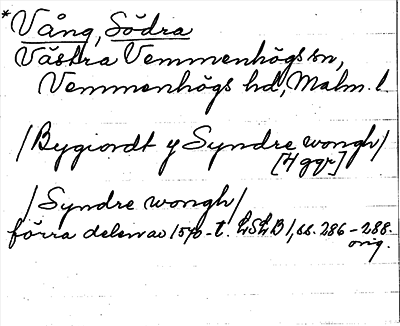 *Vång, Södra
Västra Vemmenhögs sn,
Vemmenhögs hd, Malm. l
/Bygiordt y Syndre wongh/
[4 ggr]
/Syndre wongh/
förra delen av 1570-t. LSLB 1, ss. 286-288.
orig.